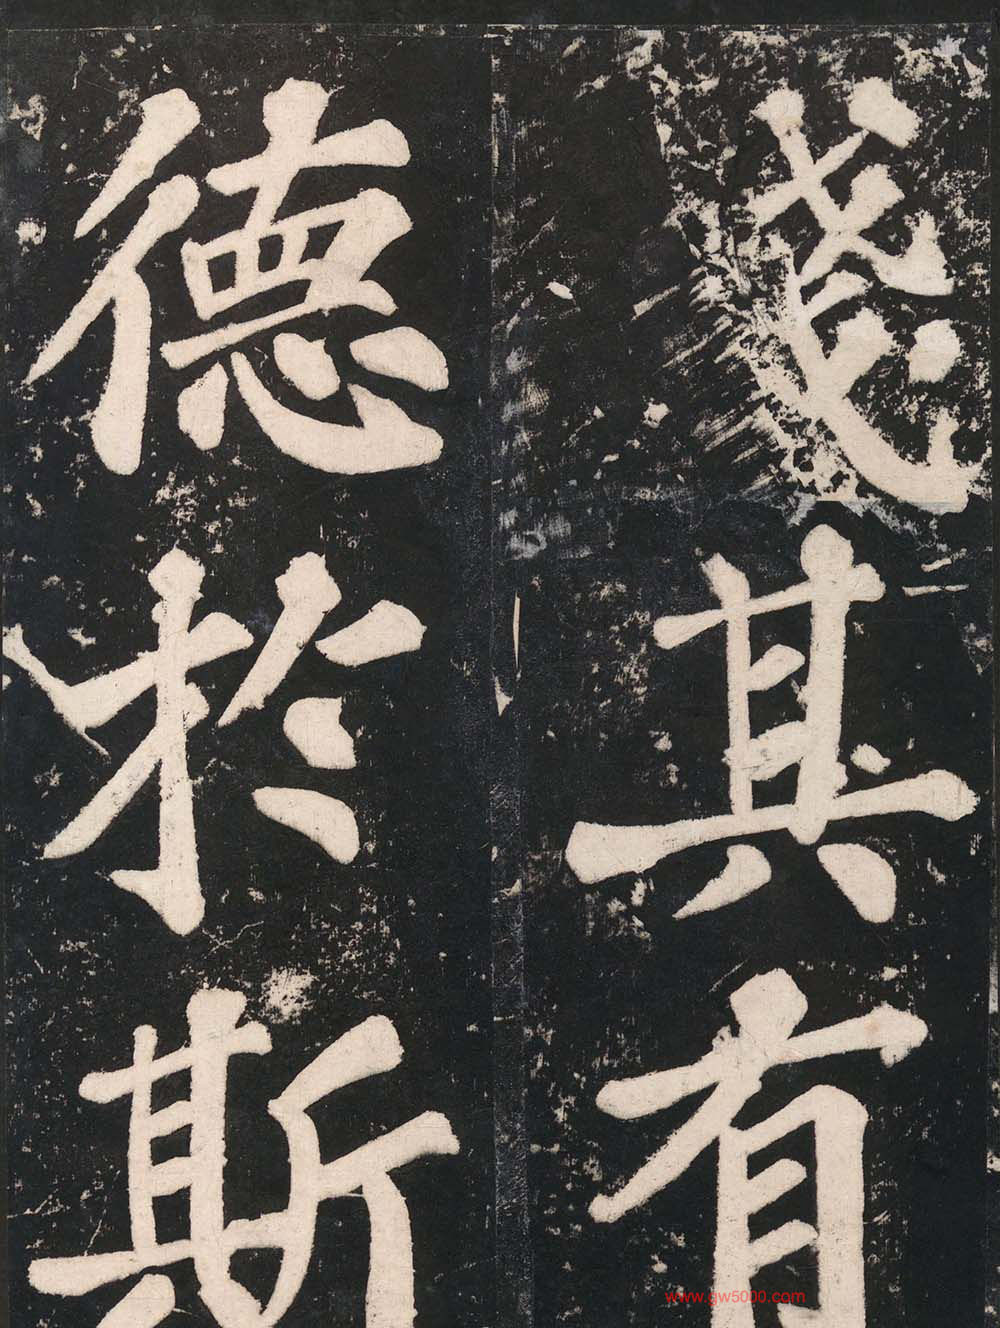 其有
德於斯
www.gw5000.com